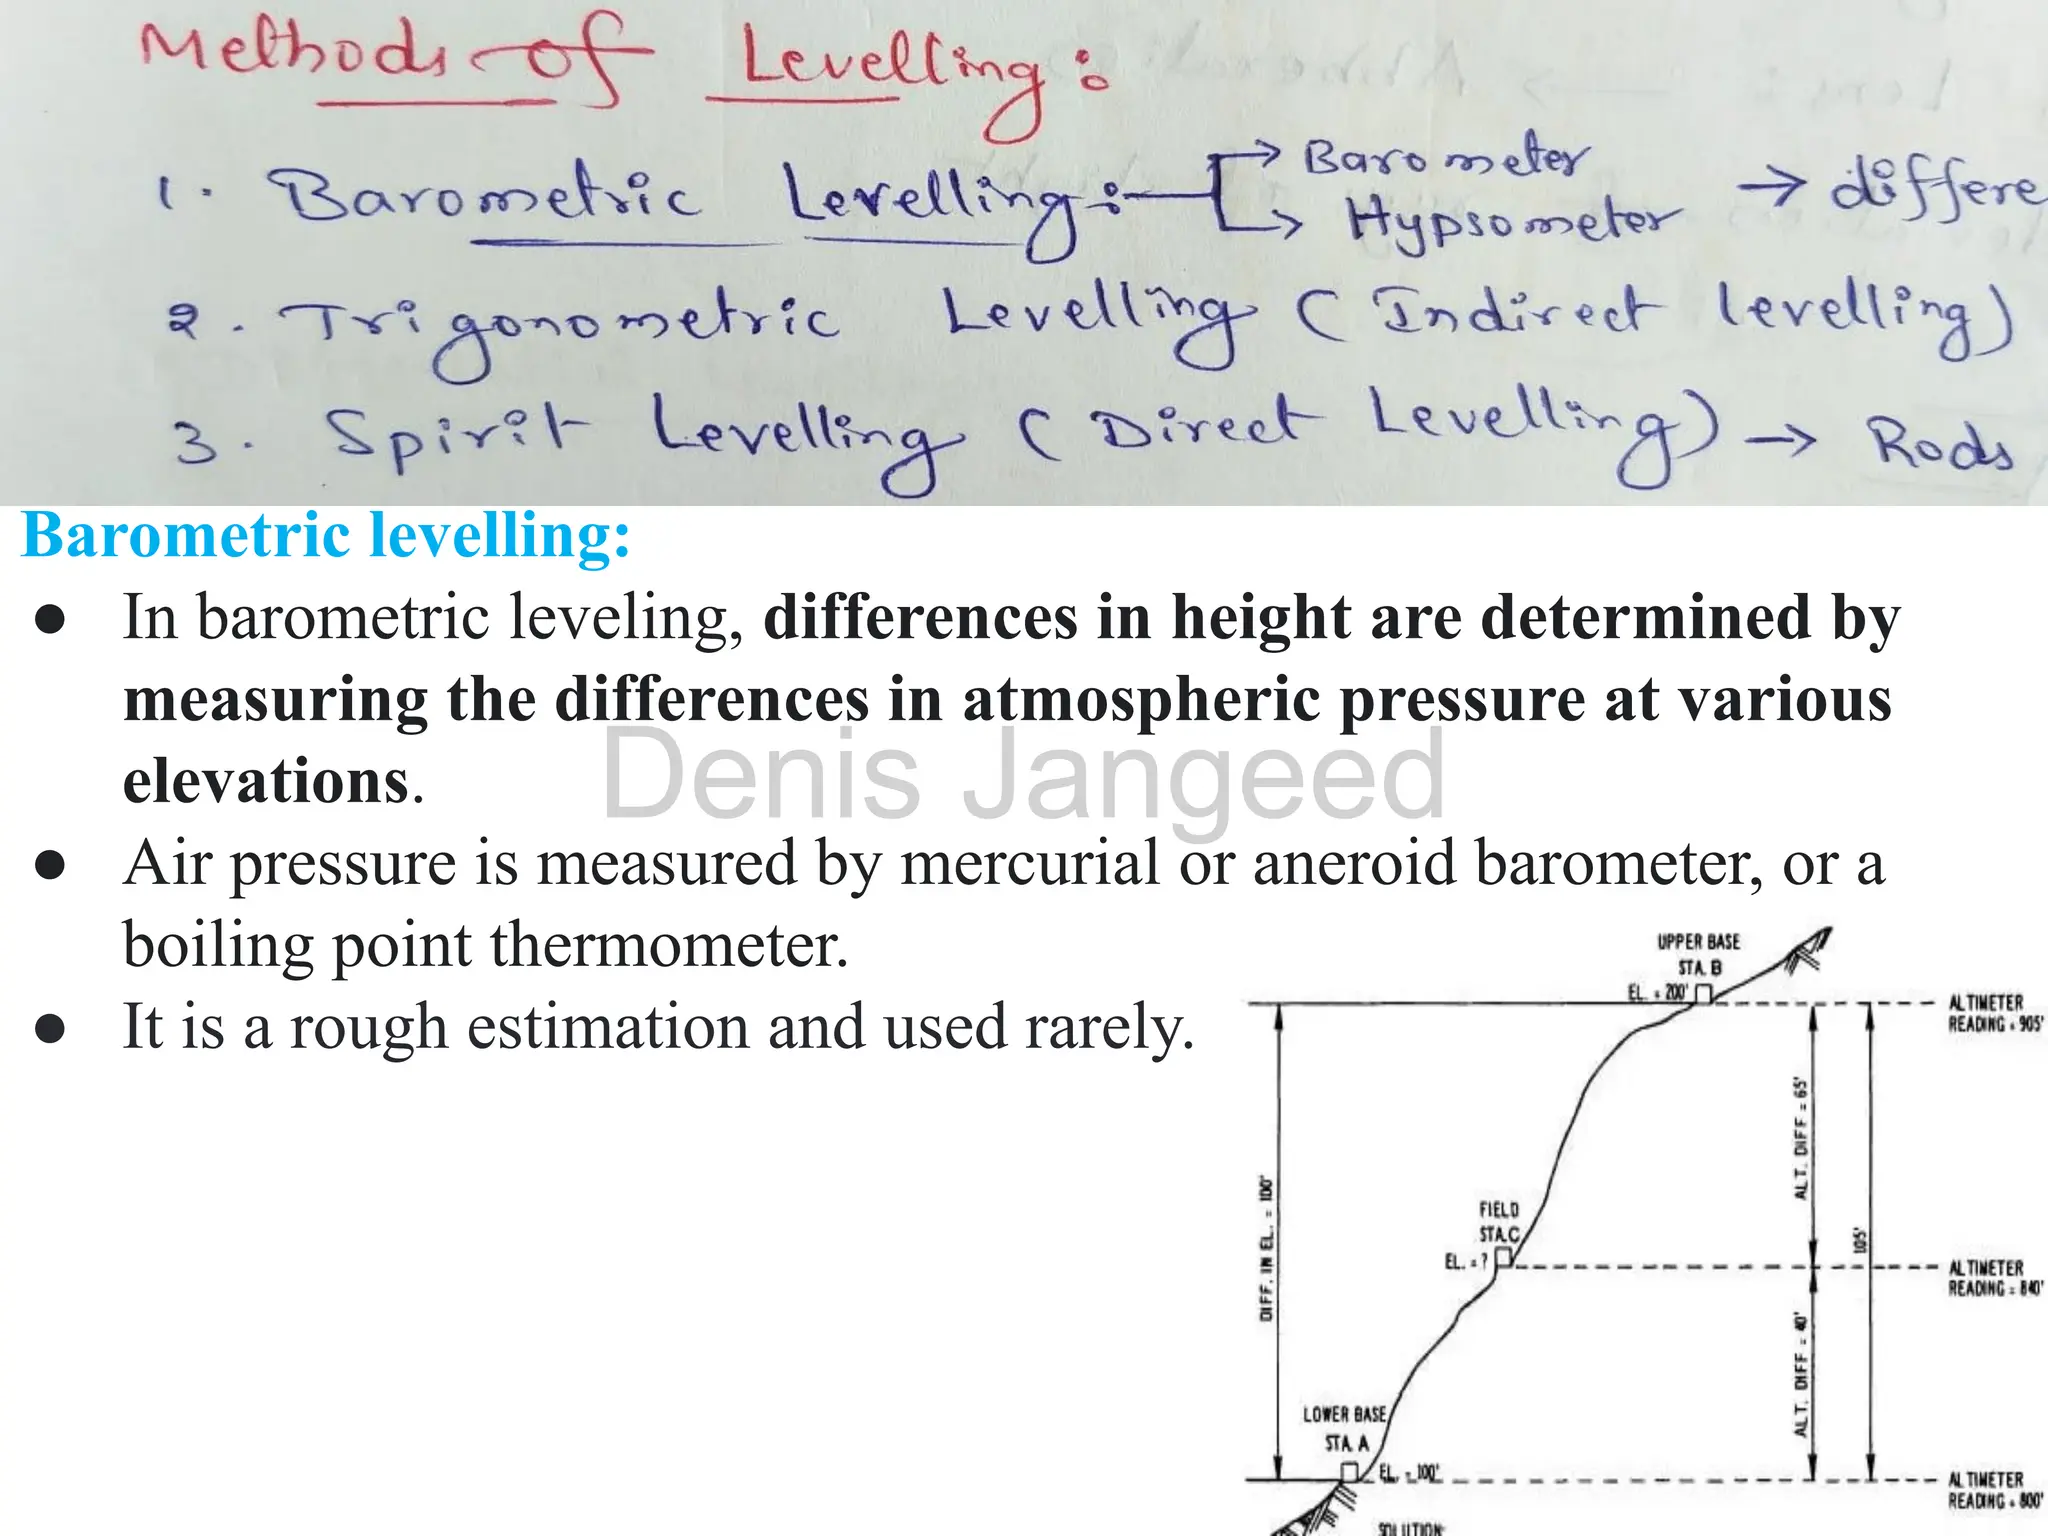 Methods of Levelling:
1. Barometric Levelling:- → Barometer → differe
→ Hypsometer
2. Trigonometric Levelling (Indirect levelling)
3. Spirit Levelling (Direct Levelling) → Rods
Barometric levelling:
● In barometric leveling, differences in height are determined by
measuring the differences in atmospheric pressure at various
elevations.
Denis Jangeed
● Air pressure is measured by mercurial or aneroid barometer, or a
boiling point thermometer.
● It is a rough estimation and used rarely.
UPPER BASE
STA. B
EL. = 200'
ALTIMETER
READING = 905'
ALT. DIFF = 65'
DIFF. IN EL. = 100'
105'
FIELD
STA.C
EL. = ?
ALTIMETER
READING = 840'
ALT. DIFF = 40'
LOWER BASE
STA. A
EL. = 100'
ALTIMETER
READING = 800'
SOLUTION: